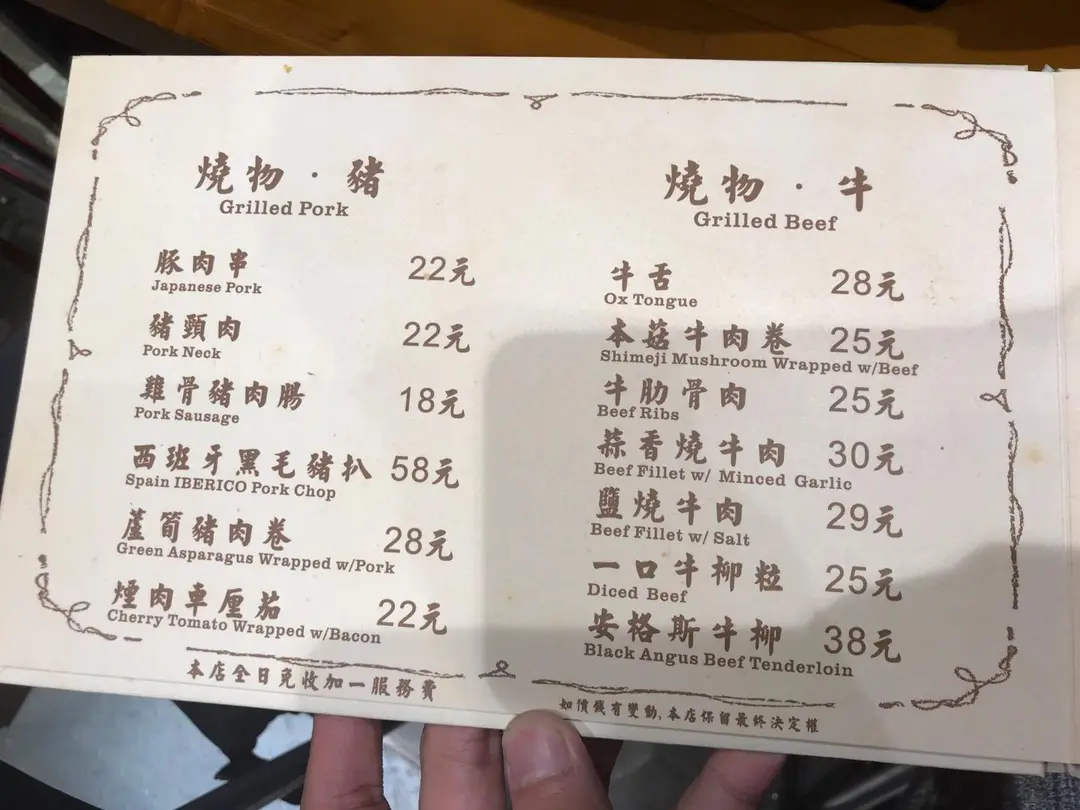 燒物·豬
Grilled Pork
豚肉串 22元
Japanese Pork
豬頸肉 22元
Pork Neck
雞骨豬肉腸 18元
Pork Sausage
西班牙黑毛豬扒 58元
Spain IBERICO Pork Chop
蘆筍豬肉卷 28元
Green Asparagus Wrapped w/Pork
煙肉車厘茄 22元
Cherry Tomato Wrapped w/Bacon
本店全日免收加一服務費
燒物·牛
Grilled Beef
牛舌 28元
Ox Tongue
本菇牛肉卷 25元
Shimeji Mushroom Wrapped w/Beef
牛肋骨肉 25元
Beef Ribs
蒜香燒牛肉 30元
Beef Fillet w/ Minced Garlic
鹽燒牛肉 29元
Beef Fillet w/ Salt
一口牛柳粒 25元
Diced Beef
安格斯牛柳 38元
Black Angus Beef Tenderloin
如價錢有變動,本店保留最終決定權